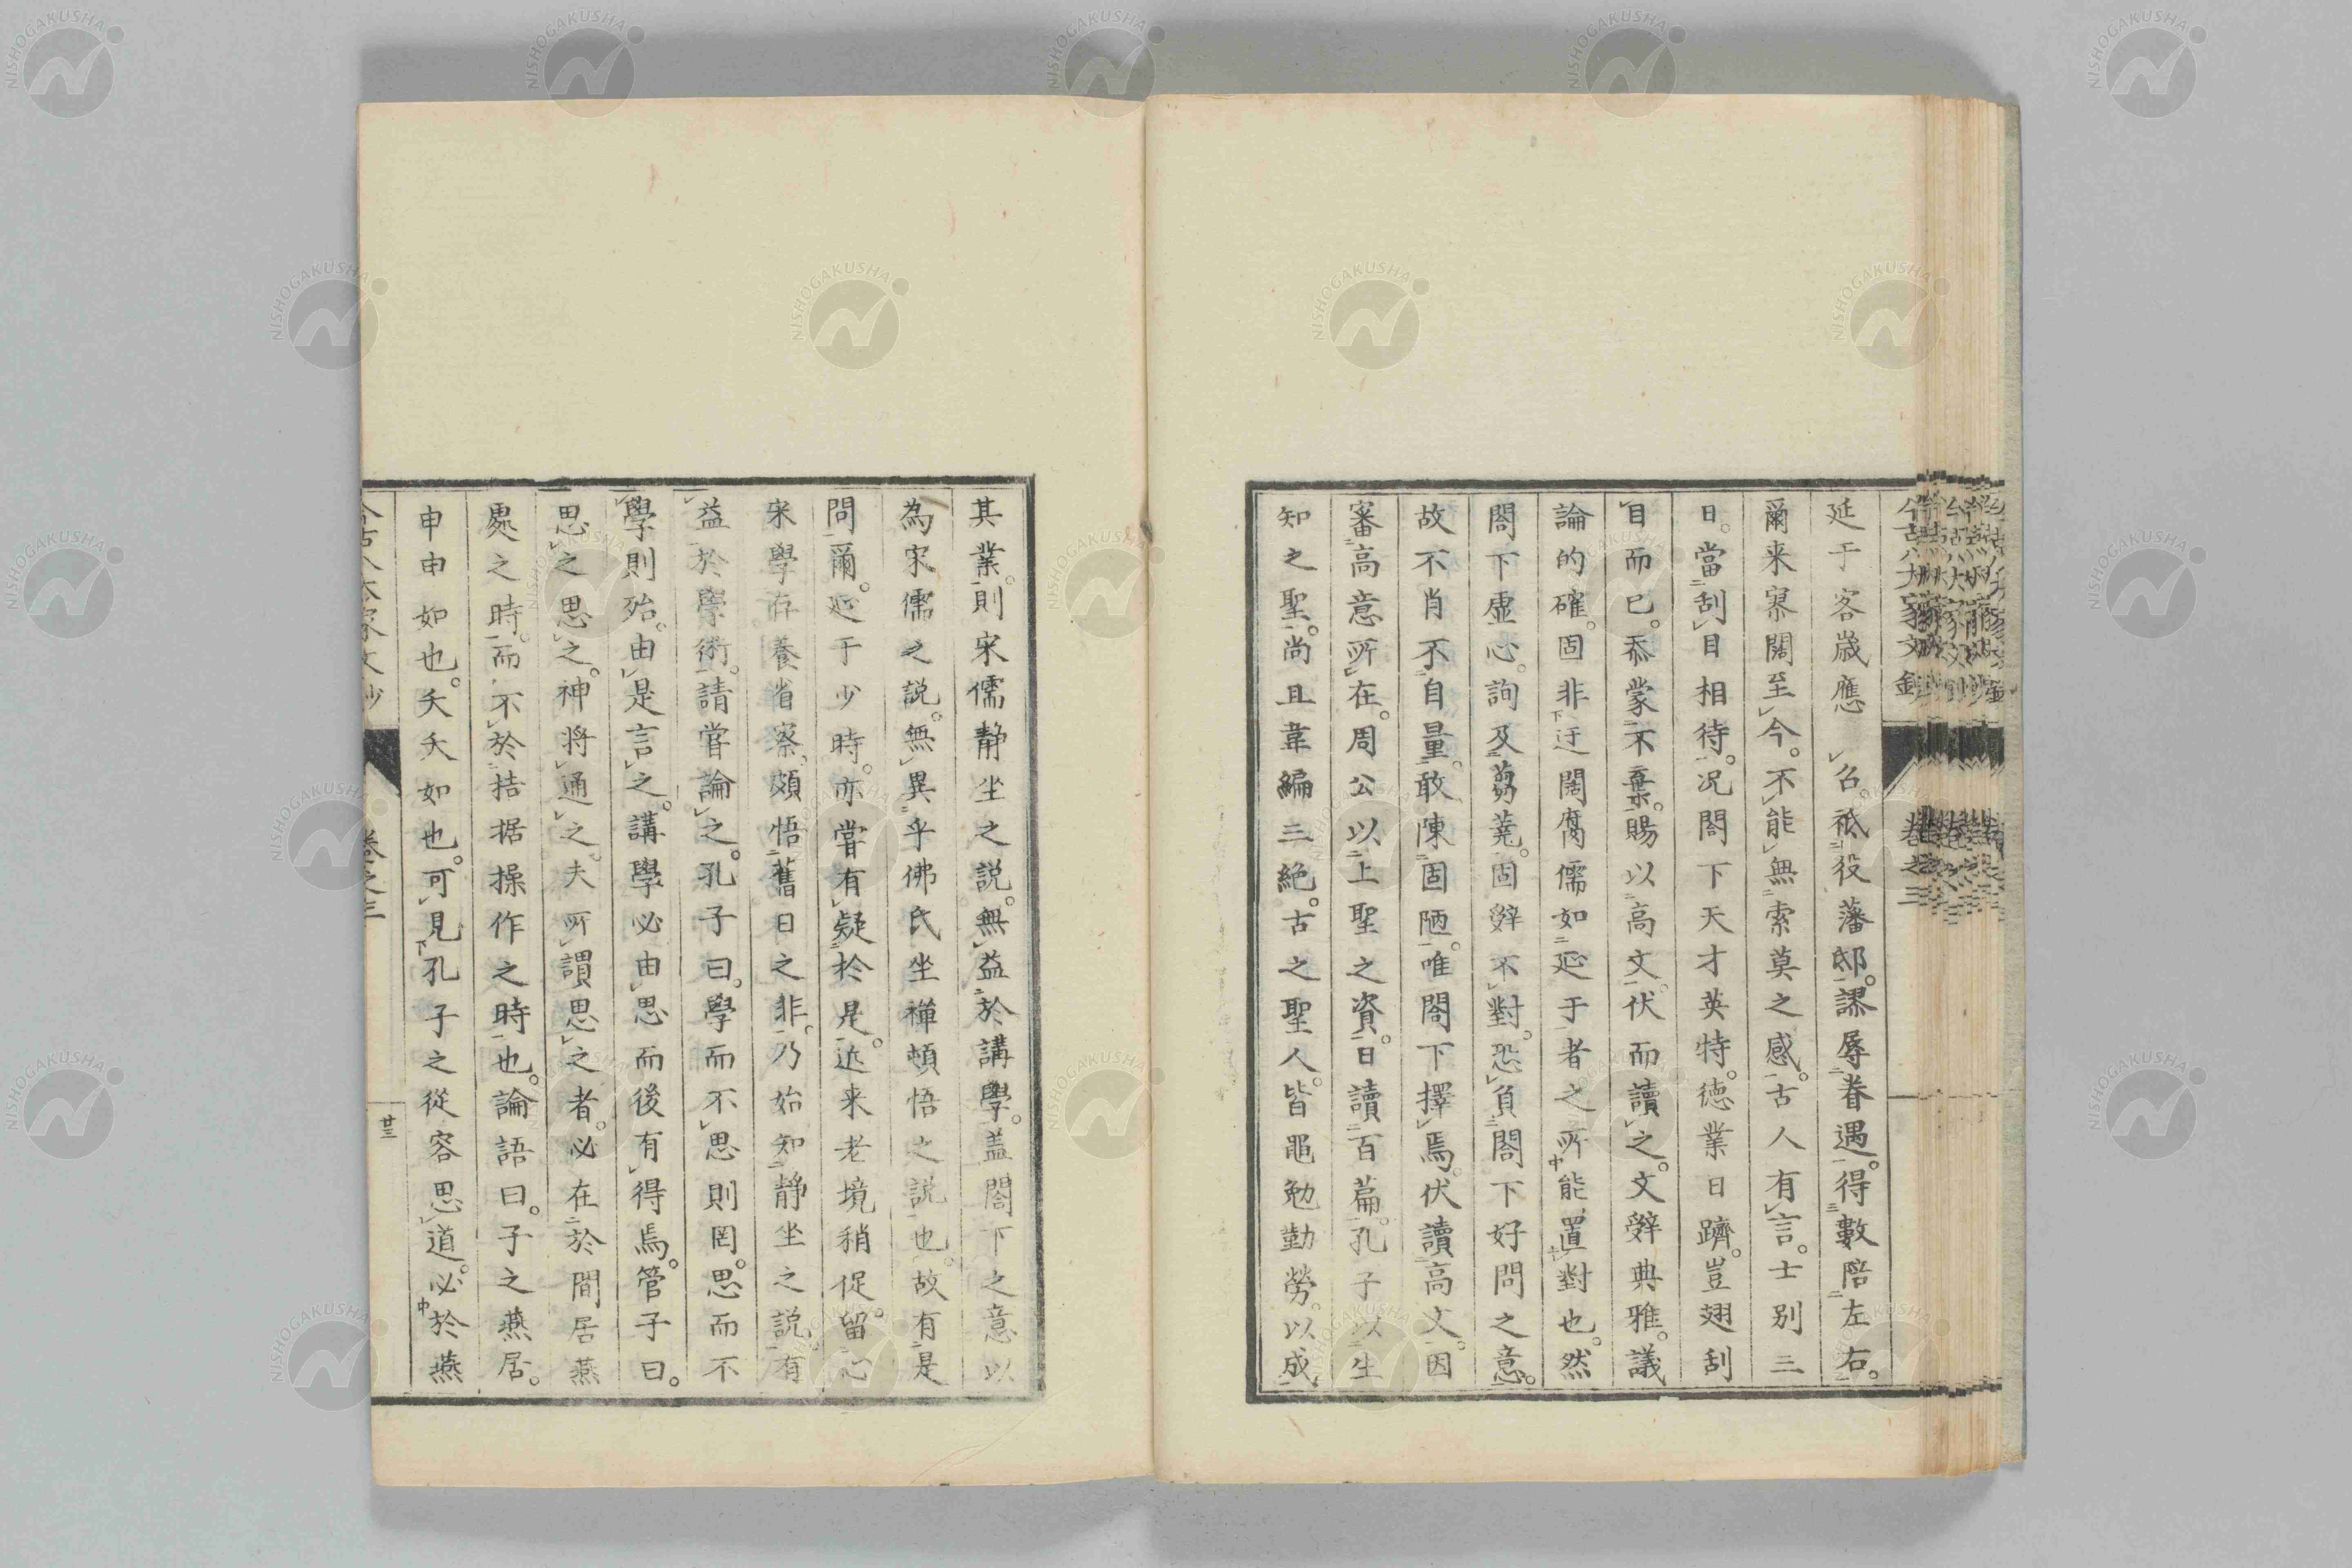 今古八大家文鈔 卷之三
延于客歲應 召。祗役藩邸。謬辱眷遇。得數陪左右。
爾来寥闊至今。不能無索莫之感。古人有言。士別三
日。當刮目相待。况閤下天才英特。德業日躋。豈翅刮
目而已。忝蒙不棄。賜以高文。伏而讀之。文辭典雅。議
論的確。固非迂闊腐儒如延于者之所能置對也。然
閤下虛心。詢及芻蕘。固辭不對。恐負閤下好問之意。
故不肖不自量。敢陳固陋。唯閤下擇焉。伏讀高文。因
審高意所在。周公以上聖之資。日讀百篇。孔子以生
知之聖。尚且韋編三絕。古之聖人。皆黽勉勤勞。以成
其業。則宋儒靜坐之説。無益於講學。盖閤下之意以
為宋儒之説。無異乎佛氏坐禅頓悟之説也。故有是
問爾。延于少時。亦嘗有疑於是。近来老境稍促。留心
宋學存養省察。頗悟舊日之非。乃始知靜坐之説。有
益於學術。請嘗論之。孔子曰。學而不思則罔。思而不
學則殆。由是言之。講學必由思而後有得焉。管子曰。
思之思之。神將通之。夫所謂思之者。必在於間居燕
處之時。而不於拮据操作之時也。論語曰。子之燕居。
申申如也。夭夭如也。可見孔子之從容思道。必於燕
卷之三
廿三